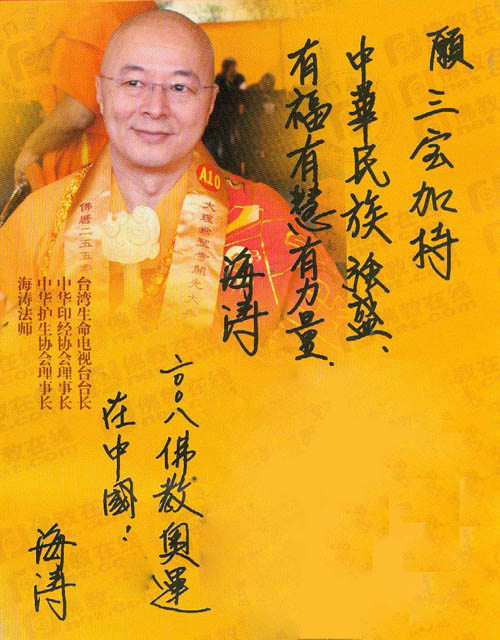 願三宝加持
中華民族強盛、
有福有慧有力量.
海涛
二〇〇八佛教奥運
在中國！
海涛
台湾生命电视台台长
中华印经协会理事长
中华护生协会理事长
海涛法师
A10
佛曆二五五